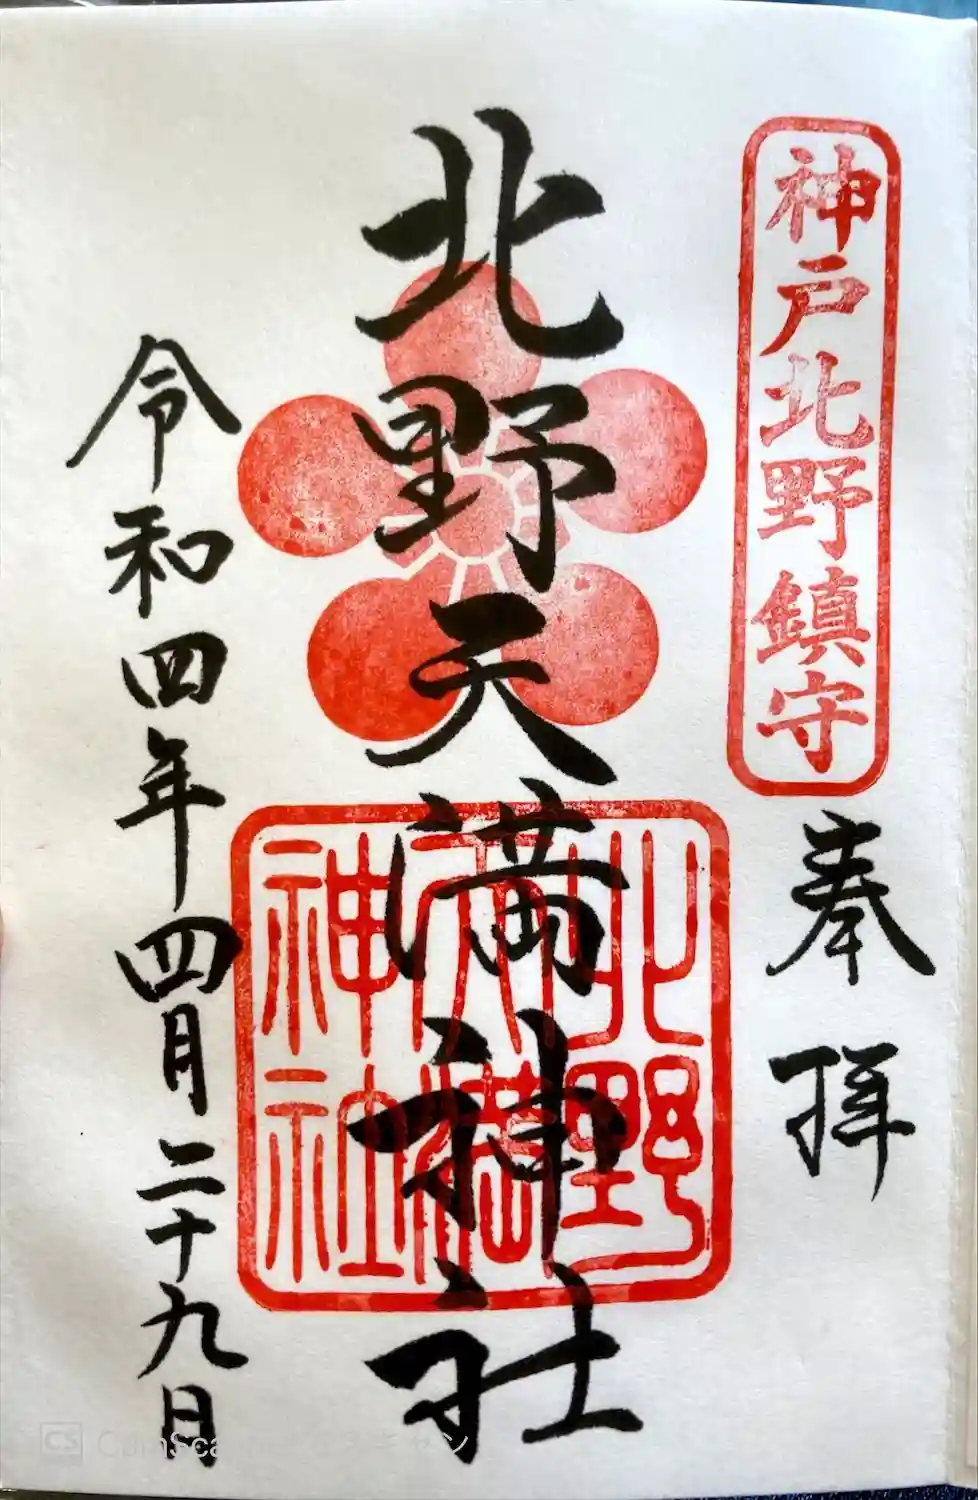 神戸北野鎮守
奉拝
北野天満神社
北野
天満
神社
令和四年四月二十九日
CS CamScanner